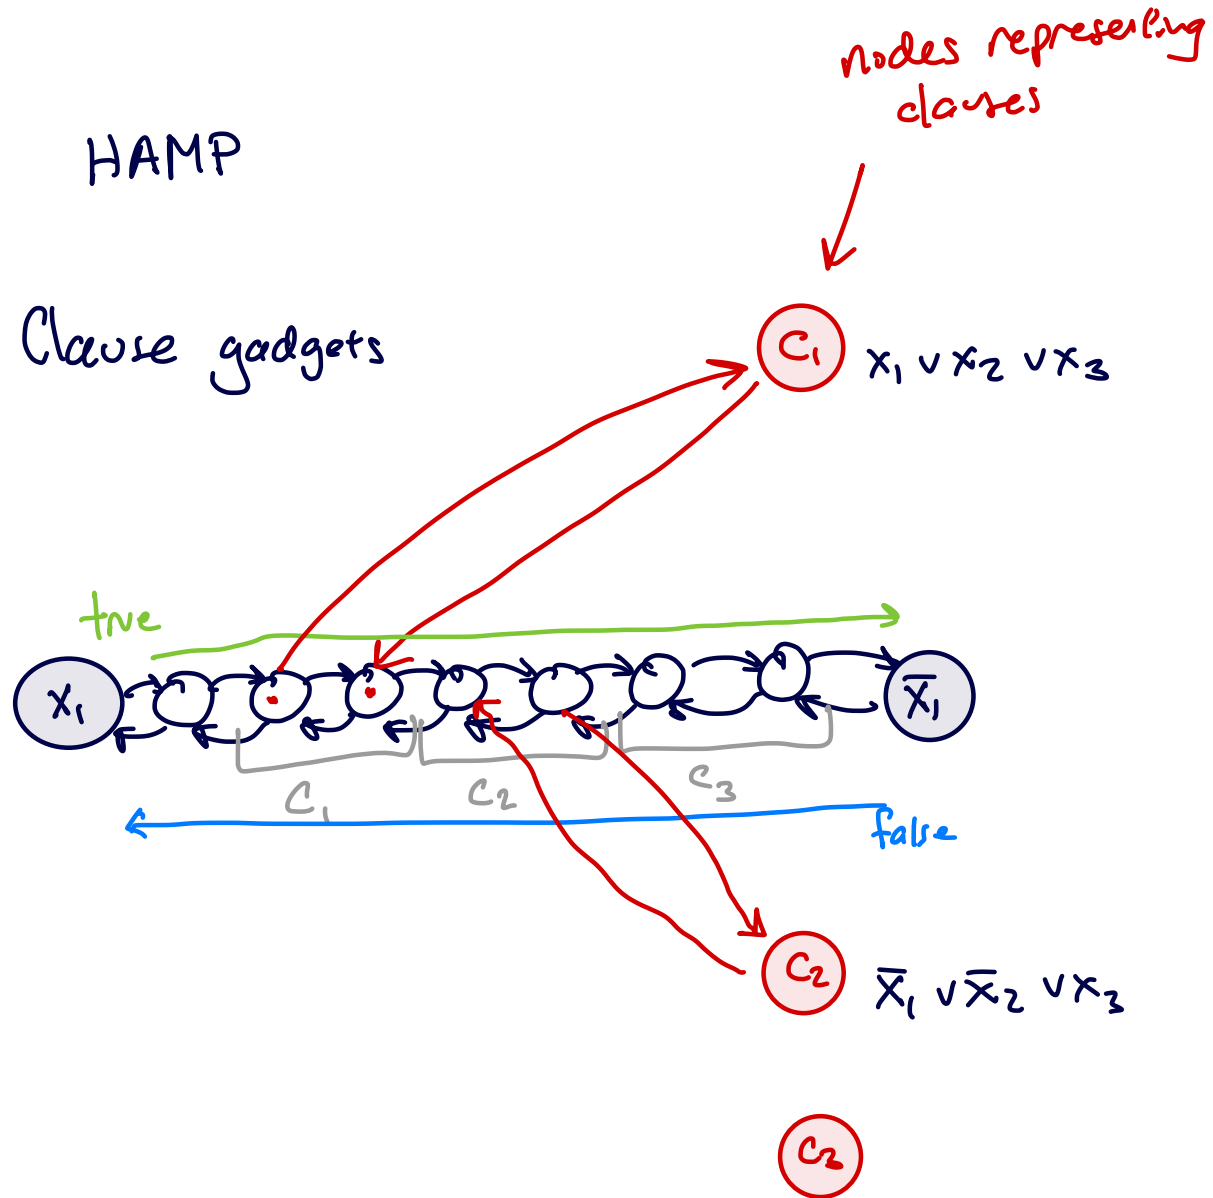 nodes representing
clauses
HAMP
Clause gadgets
C₁ x₁ ∨ x₂ ∨ x₃
true
x₁ x̄₁
C₁ C₂ C₃
false
C₂ x̄₁ ∨ x̄₂ ∨ x₃
C₃